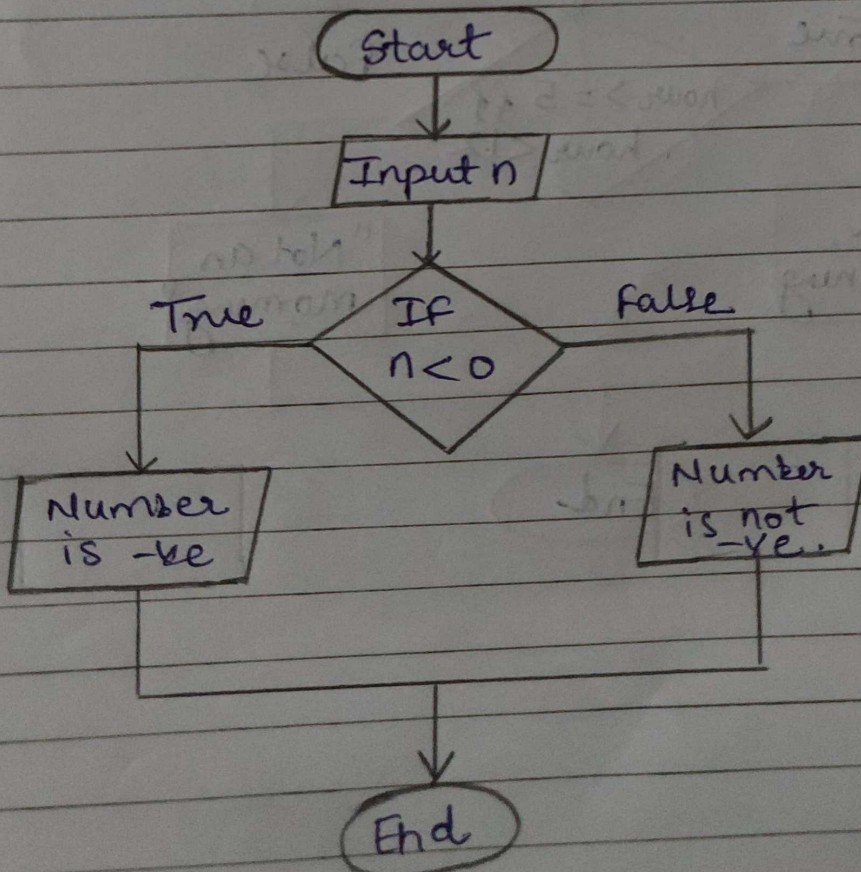 Start
Input n
True
If
False
n<0
Number
is -ve
Number
is not
-ve.
End